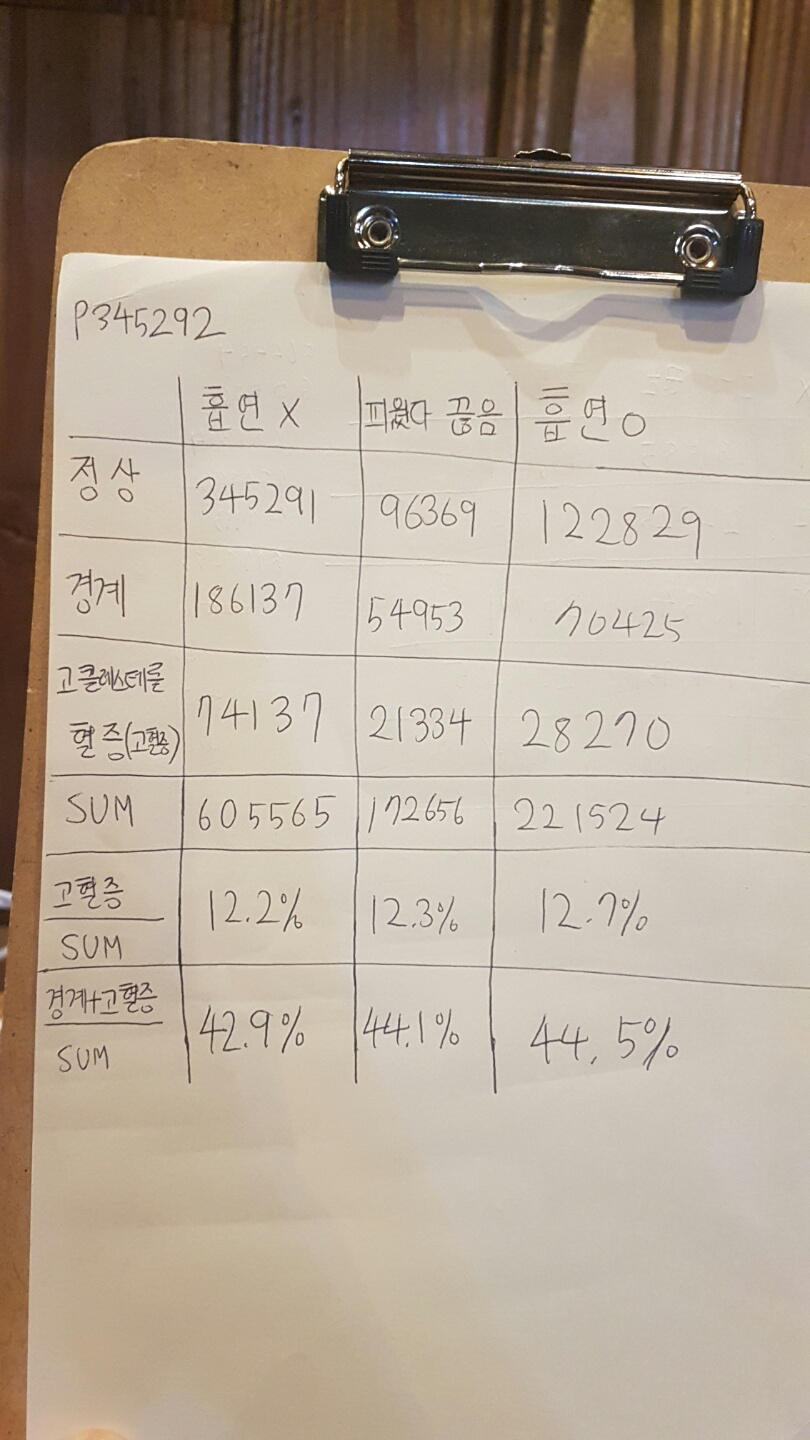 P345292
흡연 X 피웠다 끊음 흡연 O
정상 345291 96369 122829
경계 186137 54953 70425
고콜레스테롤
혈증(고혈증) 74137 21334 28270
SUM 605565 172656 221524
고혈증
SUM 12.2% 12.3% 12.7%
경계+고혈증
SUM 42.9% 44.1% 44.5%